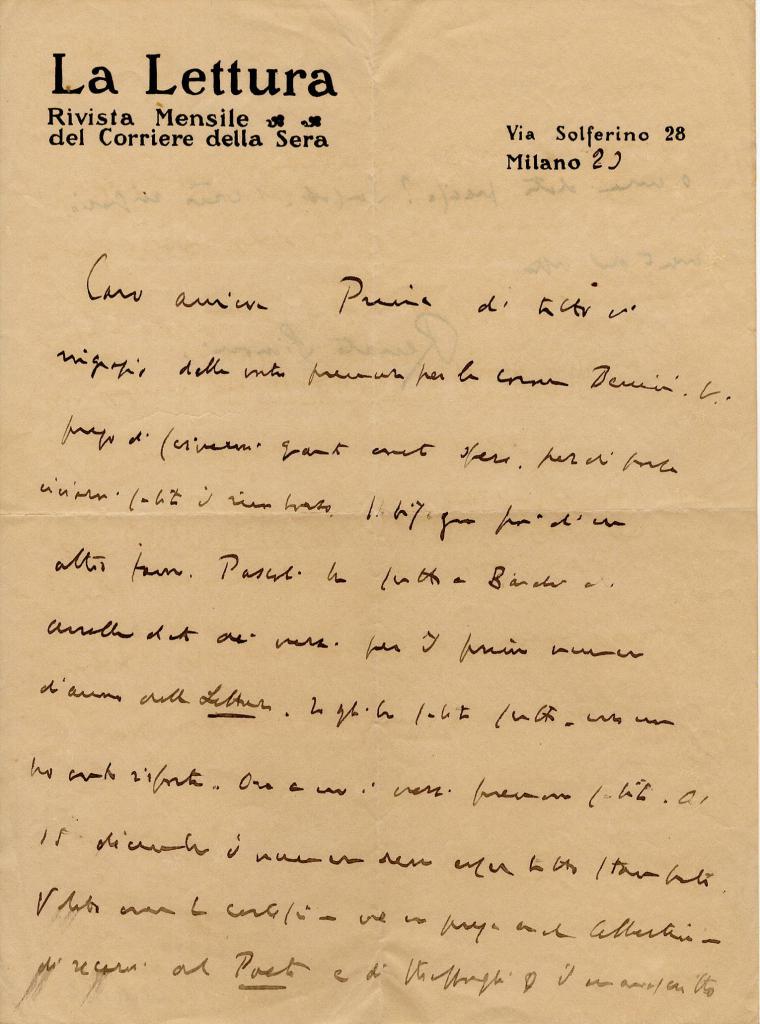 La Lettura
Rivista Mensile
del Corriere della Sera
Via Solferino 28
Milano 23
Caro amico Prima di tutto vi
ringrazio della vostra premura per la
prego di scrivermi quanto avete speso, perch'io possa
inviarvi subito il rimborso. bisogno poi d'un
altro favore. Pascoli ha scritto a
avrebbe dato dei versi per il primo numero
d'anno della Lettura. Io gli ho subito scritto, ma non
ho avuto risposta. Ora a me i versi premono subito. Al
15 dicembre il numero deve esser tutto stampato.
Volete aver la cortesia me ne prega anche Albertini
di recarvi dal Poeta e di strappargli il manoscritto